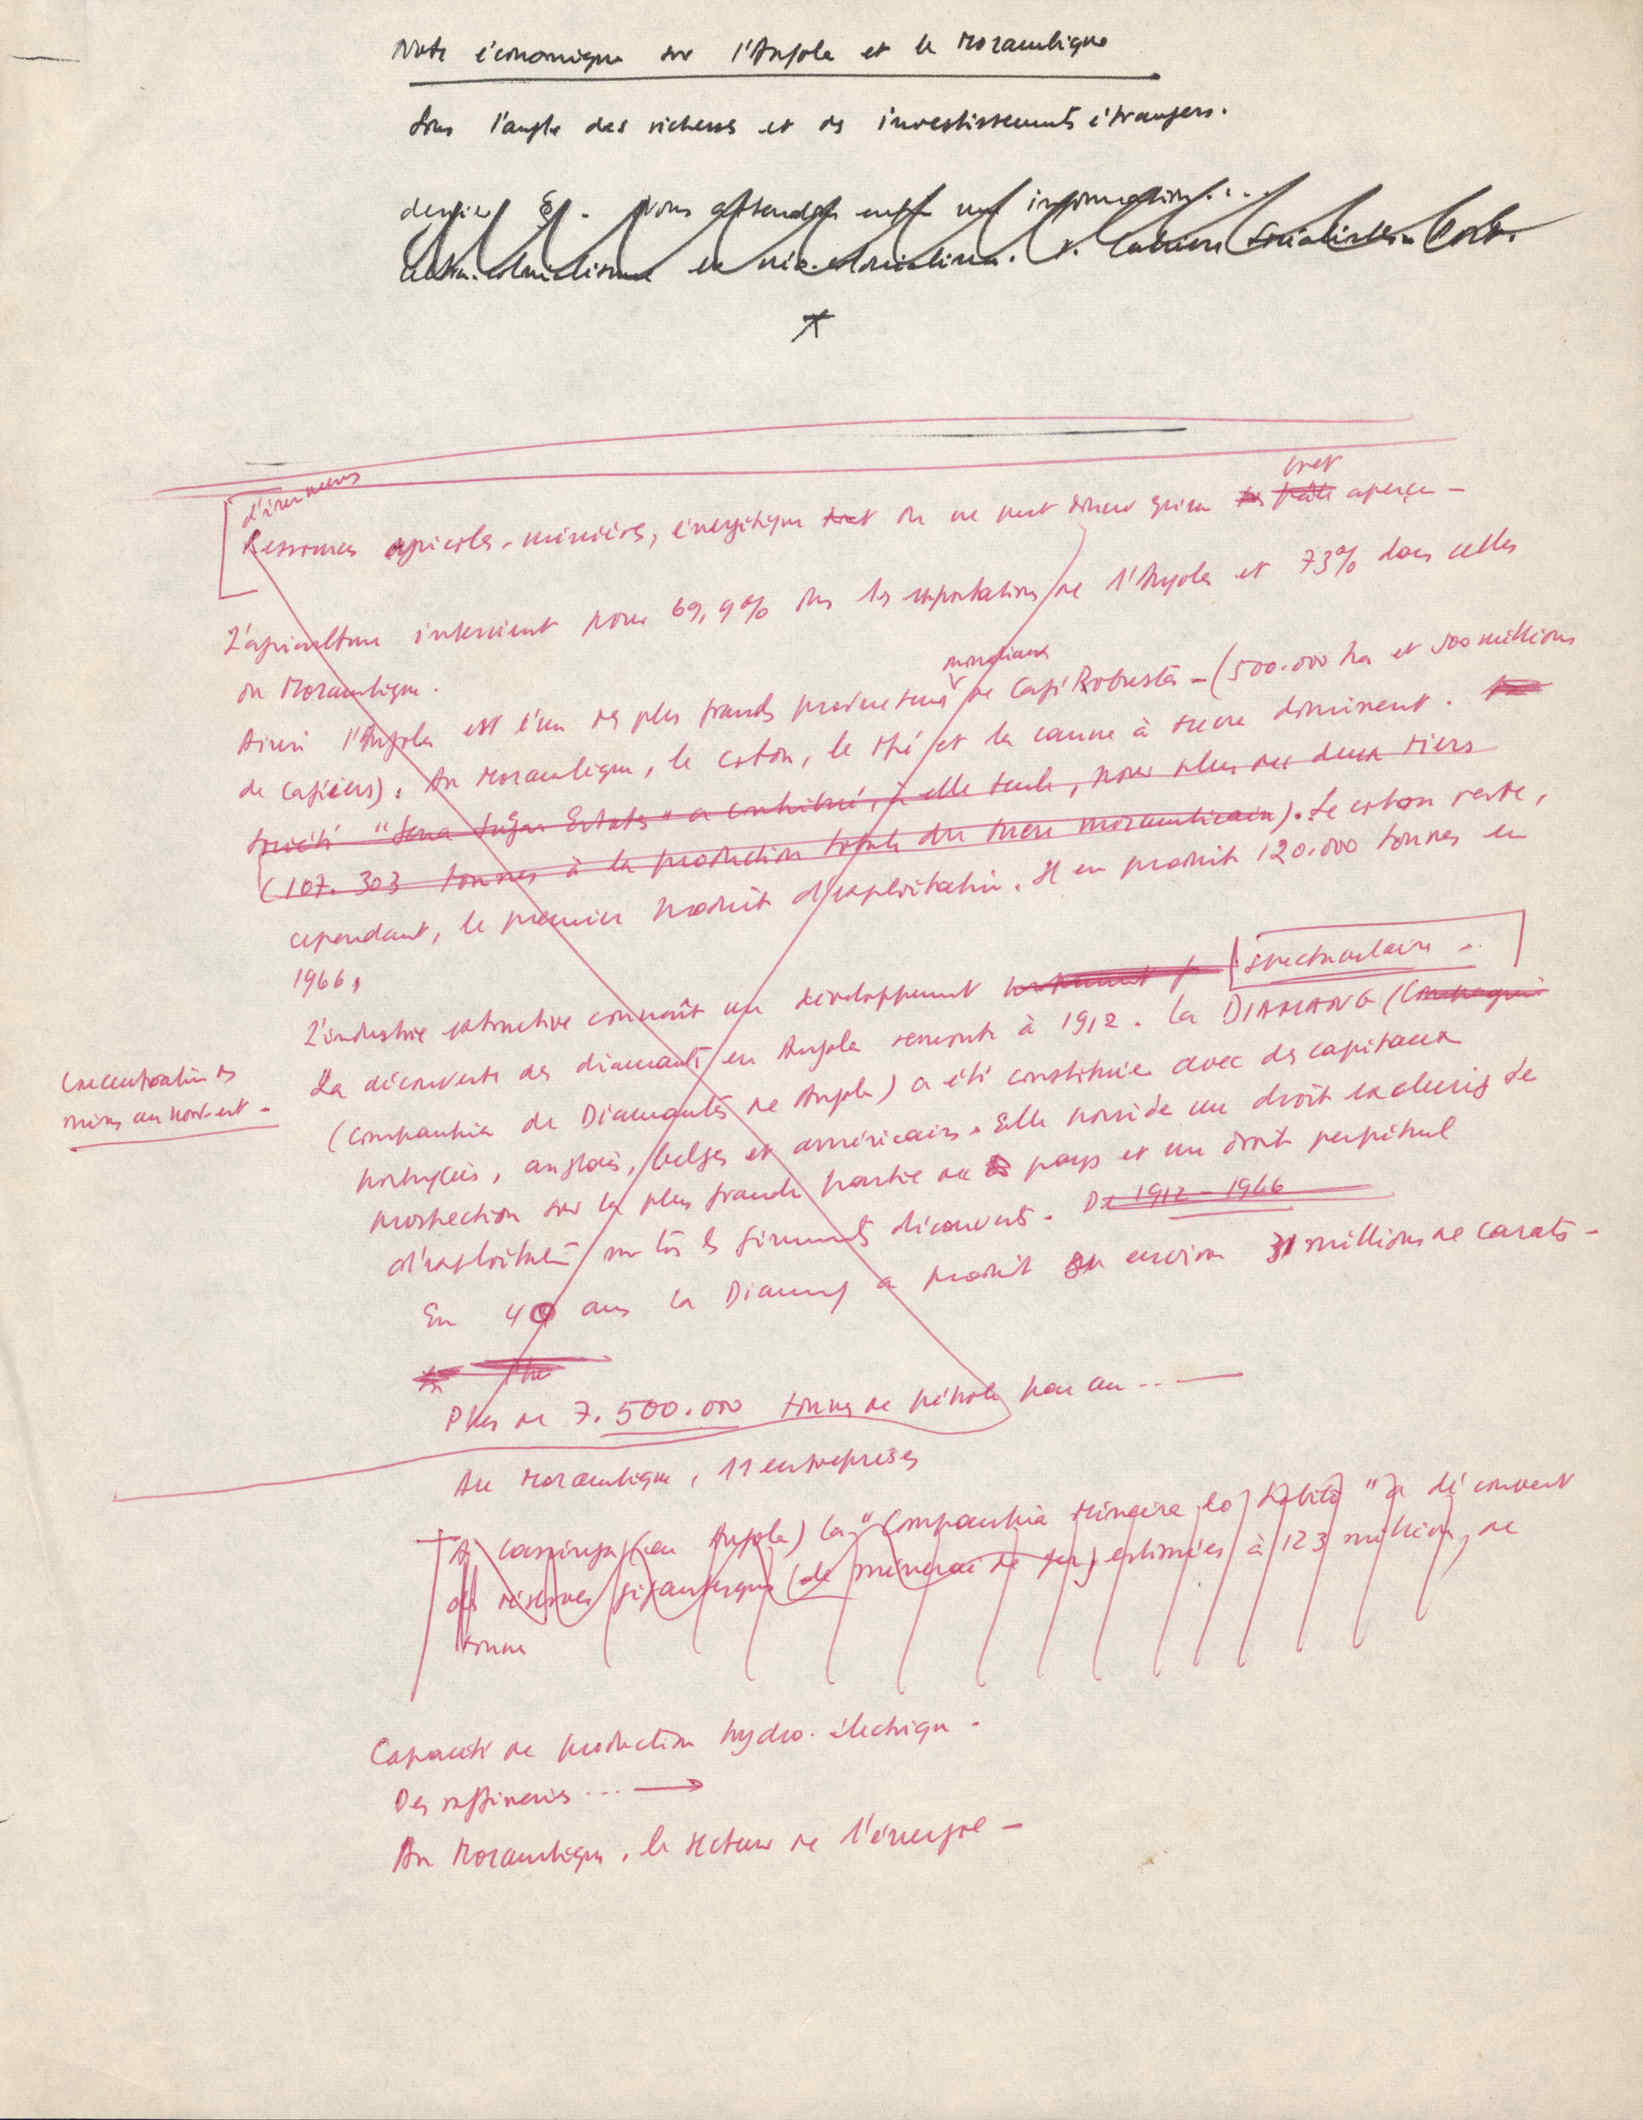 Note économique sur l'Angola et le Mozambique
Sous l'angle des richesses et des investissements étrangers.
dernier §. Nous attendons enfin une information...
et néo-colonialisme. Cahiers Socialistes
d'énormes
Ressources agricoles, minières, énergétique dont on ne peut donner qu'un bref aperçu -
L'agriculture intervient pour 69,9% dans les exportations de l'Angola et 73% dans celles
du Mozambique.
mondiaux
Ainsi l'Angola est l'un des plus grands producteurs de Café Robusta - (500.000 ha et 500 millions
de caféiers). Au Mozambique, le coton, le thé et la canne à sucre dominent.
société "Sena Sugar Estates" a contribué, à elle seule, pour plus des deux tiers
(107.303 tonnes à la production totale du sucre mozambicain). Le coton reste,
cependant, le premier produit d'exploitation. Il en produit 120.000 tonnes en
1966,
L'industrie extractive connaît un développement spectaculaire -
La découverte des diamants en Angola remonte à 1912. La DIAMANG (Compagnie
Concentration des
mines au nord-est -
(Companhia de Diamantes de Angola) a été constituée avec des capitaux
portugais, anglais, belges et américains. Elle possède un droit exclusif de
prospection sur la plus grande partie du pays et un droit perpétuel
d'exploitation sur tous les gisements découverts. De 1912 - 1966
En 40 ans la Diamang a produit environ 31 millions de carats -
Plus de 7.500.000 tonnes de pétrole par an ... —
Au Mozambique, 11 entreprises
A Cassinga (en Angola) la "Companhia Mineira do Lobito" a découvert
des réserves gigantesques (de minerai de fer) estimées à 123 millions de
tonne
Capacité de production hydro-électrique -
Des raffineries ... →
Au Mozambique, le secteur de l'énergie -